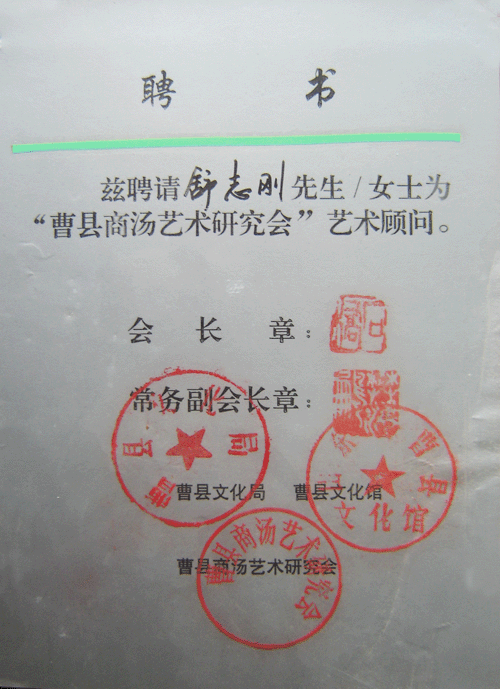 聘 书
兹聘请舒志刚先生/女士为
“曹县商汤艺术研究会”艺术顾问。
会 长 章：
常务副会长章：
曹县文化局 曹县文化馆
曹县商汤艺术研究会
曹县文化局
曹县文化馆
曹县商汤艺术研究会